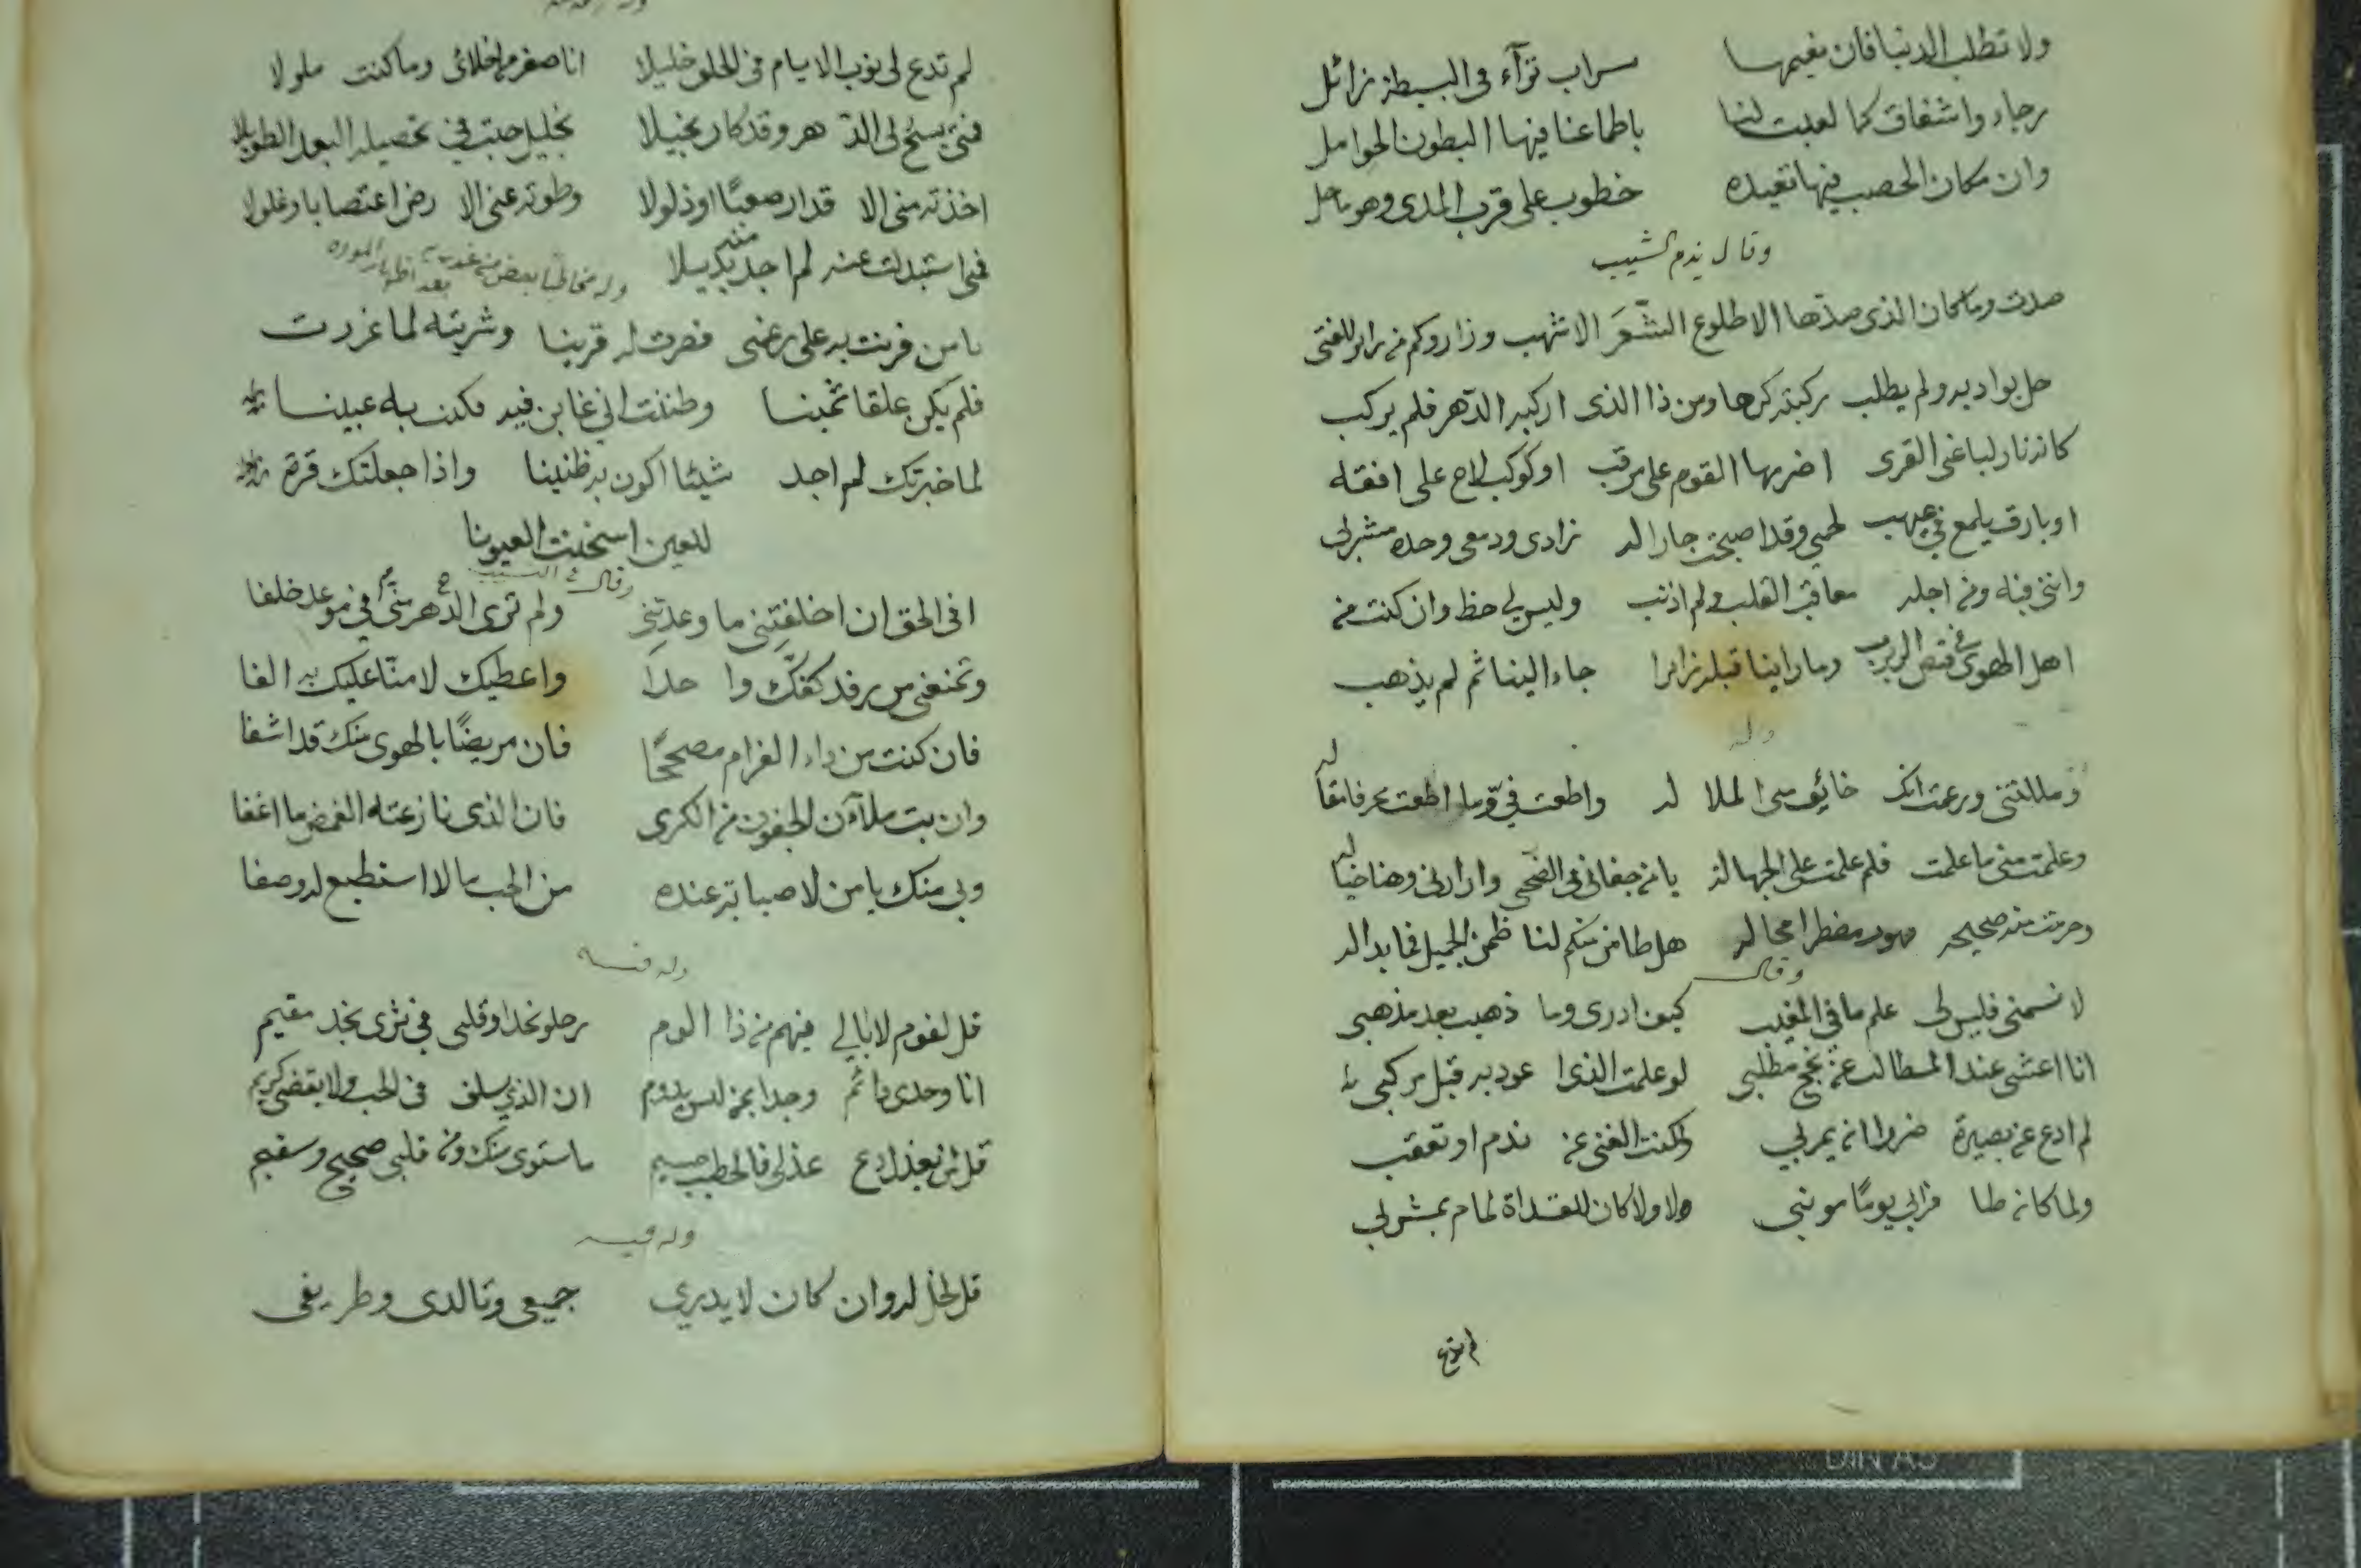 ولا تطلب الدنيا فان نعيمها سراب ترآء فى البسيطة زائل
رجاء واشفاق كما لعبت لنا باطماعنا فيها البطون الحوامل
وان مكان الخصب فيها تعيده خطوب على قرب المدى وهو ماحل
وقال يذم الشيب
صدت وما كان الذى صدّها الا طلوع الشَّعَر الاشهب وزار وكم من زائر للفتى
حل بواديه ولم يطلب ركبته كرها ومن ذا الذى اركبه الدّهر فلم يركب
كانه نار لباغى القرى اضرمها القوم على مرقب او كوكب لاح على افقه
او بارق يلمع فى غيهب لحمى وقد اصبحت جارا له زادى ودمعى وحده مشربى
واننى فيه ومن اجله معاقب القلب ولم اذنب وليس لى حظ وان كنت من
اهل الهوى فى قنص الربرب وما راينا قبله زائرا جاء الينا ثم لم يذهب
وله
ومللتنى وزعمت انك خائف منى الملالة واطعت فىّ وما اطعت بحرفا
وعلمت منى ما علمت فلم علمت على الجهالة يا من جفانى فى الضحى وازارنى وهنا خياله
وحرمت منه صحيحه هل ضامن منكم لنا ظمن الجميل فما بدا له
وقال
لا تسمنى فليس لى علم ما فى المغيب كيف ادرى وما ذهبت بعد مذهبى
انا اعشى عند المطالب عن نجح مطلبى لو علمت الذى اعود به قبل مركبى
لم ادع عن بصيرة ضررا انه يمر بى ولكنت الغنى عن ندم او تعقب
ولما كان ظافرا بى يوما مونبى ولا ولا كان للقذاة لمام بمشربى
لم تدع
لم تدع لى نوب الايام فى الخلق خليلا انا صفر من اخلائى وما كنت ملولا
فمتى يسخ لى الدّهر وقد كان بخيلا بخليل جبت فى تحصيله البعد الطويلا
اخذته منى الاقدار صعبًا او ذلولا وطوته عنى الارض اعتصابا وغلولا
فمتى استبدلت عنه لم اجد منه بديلا
وله مخاطبا بعض
يا من قرنت به على رغمى فصرت له قرينا وشريته لما غررت
فلم يكن علقا ثمينا وظننت انى غابن فيه فكنت به غبينا
لما خبرتك لم اجد شيئا اكون به ظنينا واذا جعلتك قرة
للعين اسخنت العيونا
وقال فى النسيب
افى الحق ان اخلفتِنى ما وعدتنى ولم ترى الدّهر منى فى موعد خلفا
وتمنعنى من رفد كفّك واحدا واعطيك لا منّا عليك به الفا
فان كنت من داء الغرام مصححًا فان مريضًا بالهوى منك قد اشفا
وان بت ملآن الجفون من الكرى فان الذى نازعته الغمض ما اغفا
وبى منك يا من لا صبابة عنده من الحب ما لا استطيع له وصفا
وله فيه
قل لقوم لا ابالى فيهم من ذا الوم رحلو نجدا وقلبى فى ثرى نجد مقيم
انا وحدى دائم وجدا بمن ليس يدوم ان الذى سلف فى الحب ولا يقضى كريم
قل لمن يعذل دع عذلى فالخطب جسيم ما استوى منك ومن قلبى صحيح وسقيم
وله فيه
قل لخل له وان كان لا يدرى جميعى وتالدى وطريفى